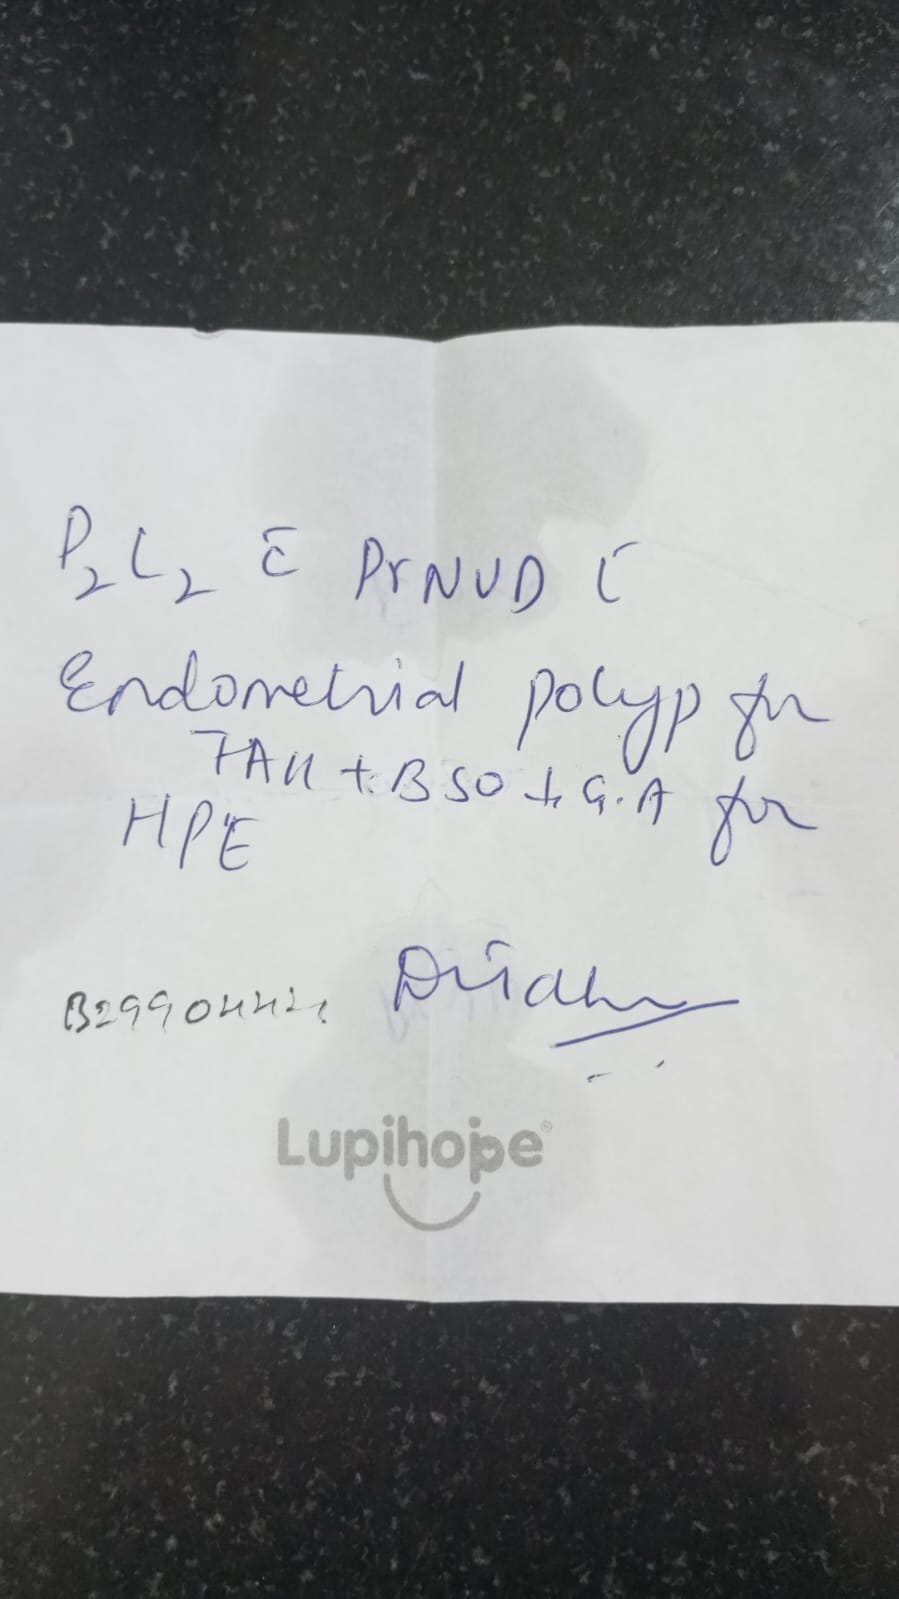 P2L2 c̄ PrNVD c̄
Endometrial polyp for
TAH + BSO + G.A for
HPE
Lupihope®